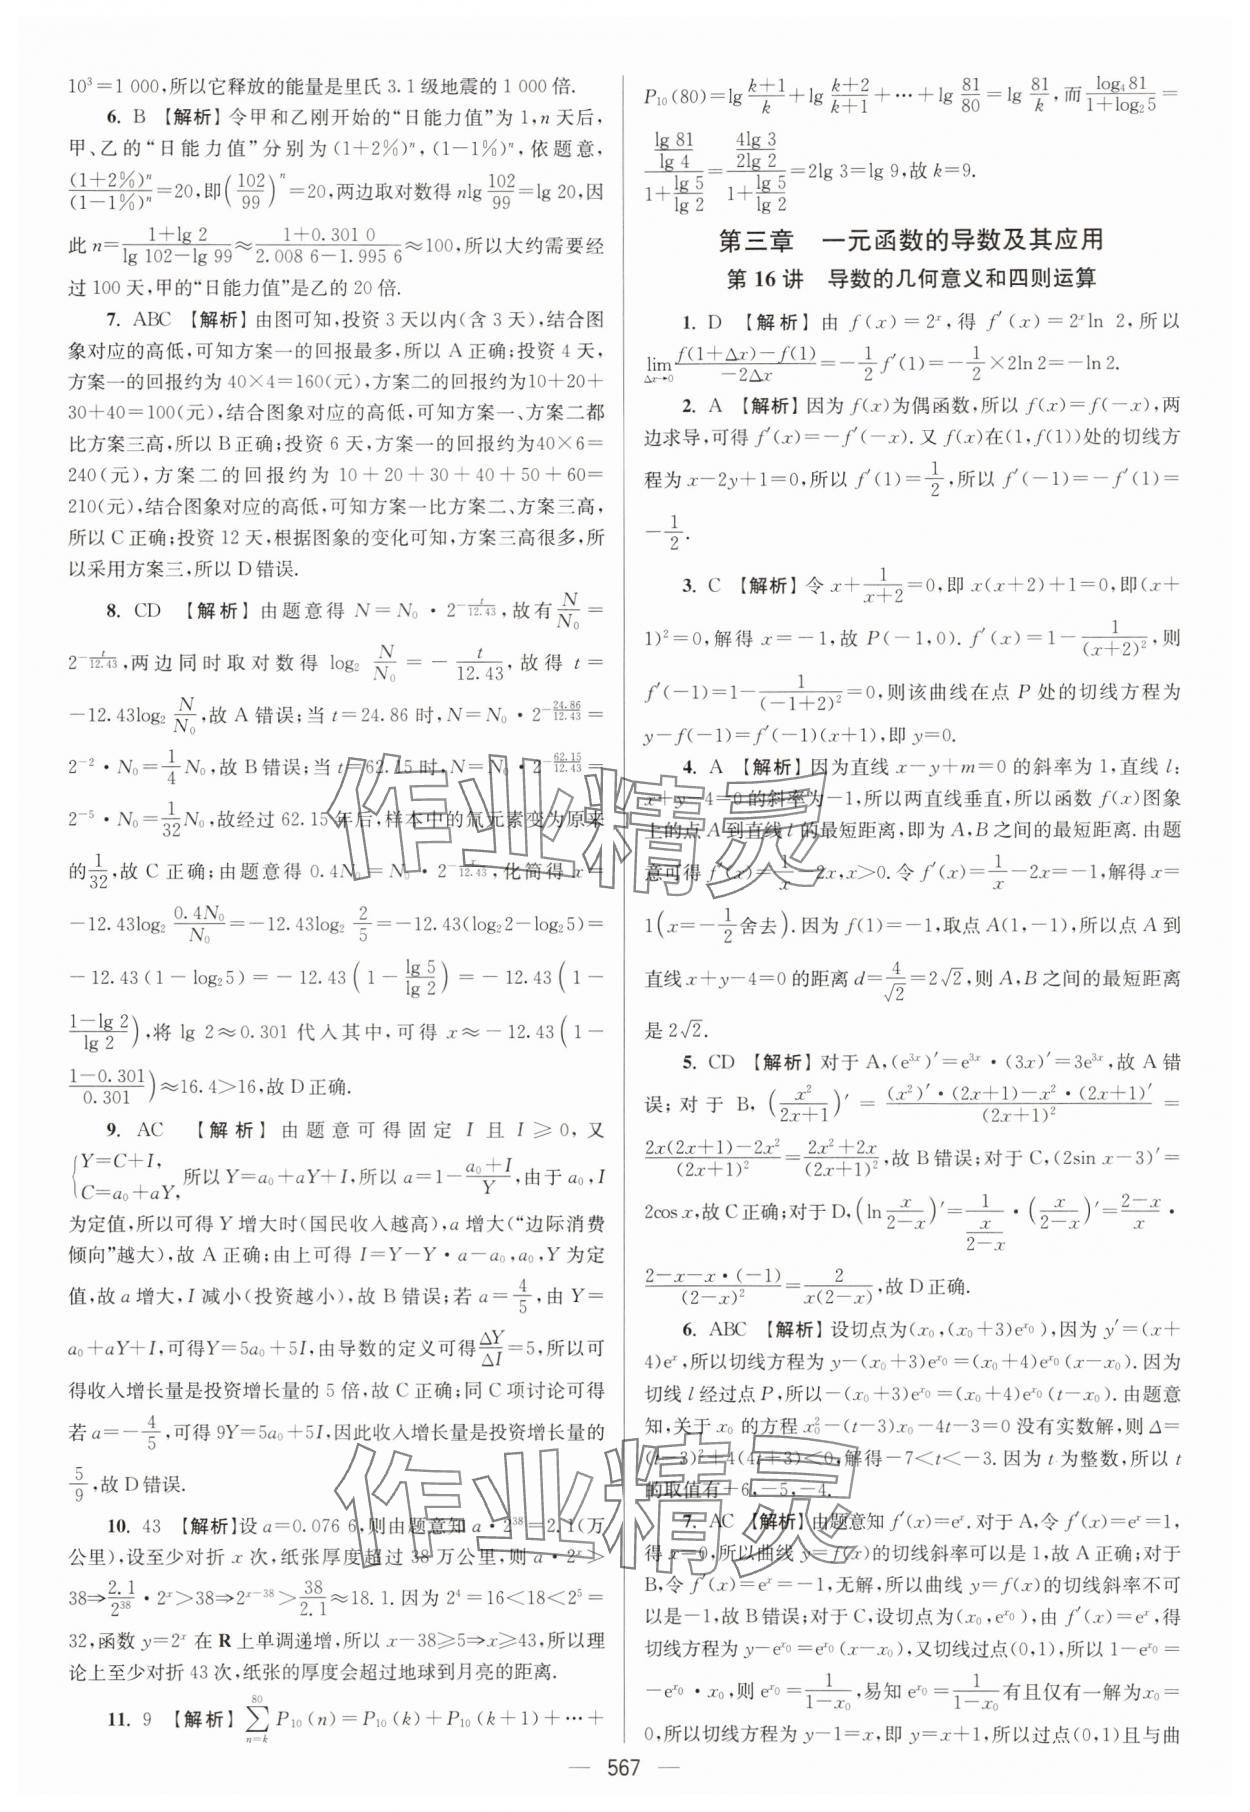 10³=1 000,所以它释放的能量是里氏3.1级地震的1 000倍.
6. B 【解析】令甲和乙刚开始的“日能力值”为1,n天后,
甲、乙的“日能力值”分别为(1+2%)ⁿ,(1-1%)ⁿ,依题意,
(1+2%)ⁿ/(1-1%)ⁿ=20,即(102/99)ⁿ=20,两边取对数得nlg 102/99=lg 20,因
此n=(1+lg 2)/(lg 102-lg 99)≈(1+0.301 0)/(2.008 6-1.995 6)≈100,所以大约需要经
过100天,甲的“日能力值”是乙的20倍.
7. ABC 【解析】由图可知,投资3天以内(含3天),结合图
象对应的高低,可知方案一的回报最多,所以A正确;投资4天,
方案一的回报约为40×4=160(元),方案二的回报约为10+20+
30+40=100(元),结合图象对应的高低,可知方案一、方案二都
比方案三高,所以B正确;投资6天,方案一的回报约为40×6=
240(元),方案二的回报约为10+20+30+40+50+60=
210(元),结合图象对应的高低,可知方案一比方案二、方案三高,
所以C正确;投资12天,根据图象的变化可知,方案三高很多,所
以采用方案三,所以D错误.
8. CD 【解析】由题意得N=N₀·2^(-t/12.43),故有N/N₀=
2^(-t/12.43),两边同时取对数得log₂ N/N₀=-t/12.43,故得t=
-12.43log₂ N/N₀,故A错误;当t=24.86时,N=N₀·2^(-24.86/12.43)=
2⁻²·N₀=1/4 N₀,故B错误;当t=62.15时,N=N₀·2^(-62.15/12.43)=
2⁻⁵·N₀=1/32 N₀,故经过62.15年后,样本中的氚元素变为原来
的1/32,故C正确;由题意得0.4N₀=N₀·2^(-x/12.43),化简得x=
-12.43log₂ 0.4N₀/N₀=-12.43log₂ 2/5=-12.43(log₂2-log₂5)=
-12.43(1-log₂5)=-12.43(1-lg 5/lg 2)=-12.43(1-
(1-lg 2)/lg 2),将lg 2≈0.301代入其中,可得x≈-12.43(1-
(1-0.301)/0.301)≈16.4>16,故D正确.
9. AC 【解析】由题意可得固定I且I≥0,又
{Y=C+I, C=a₀+aY,所以Y=a₀+aY+I,所以a=1-(a₀+I)/Y,由于a₀,I
为定值,所以可得Y增大时(国民收入越高),a增大(“边际消费
倾向”越大),故A正确;由上可得I=Y-Y·a-a₀,a₀,Y为定
值,故a增大,I减小(投资越小),故B错误;若a=4/5,由Y=
a₀+aY+I,可得Y=5a₀+5I,由导数的定义可得ΔY/ΔI=5,所以
可得收入增长量是投资增长量的5倍,故C正确;同C项讨论可得
若a=-4/5,可得9Y=5a₀+5I,因此收入增长量是投资增长量的
5/9,故D错误.
10. 43 【解析】设a=0.076 6,则由题意知a·2³⁸=2.1(万
公里),设至少对折x次,纸张厚度超过38万公里,则a·2ˣ>
38⇒2.1/2³⁸·2ˣ>38⇒2ˣ⁻³⁸>38/2.1≈18.1.因为2⁴=16<18<2⁵=
32,函数y=2ˣ在R上单调递增,所以x-38≥5⇒x≥43,所以理
论上至少对折43次,纸张的厚度会超过地球到月亮的距离.
11. 9 【解析】∑(n=k→80) P₁₀(n)=P₁₀(k)+P₁₀(k+1)+…+
P₁₀(80)=lg (k+1)/k+lg (k+2)/(k+1)+…+lg 81/80=lg 81/k,而log₄81/(1+log₂5)=
(lg 81/lg 4)/(1+lg 5/lg 2)=(4lg 3/2lg 2)/(1+lg 5/lg 2)=2lg 3=lg 9,故k=9.
第三章 一元函数的导数及其应用
第16讲 导数的几何意义和四则运算
1. D 【解析】由f(x)=2ˣ,得f′(x)=2ˣln 2,所以
lim(Δx→0) (f(1+Δx)-f(1))/(-2Δx)=-1/2 f′(1)=-1/2×2ln 2=-ln 2.
2. A 【解析】因为f(x)为偶函数,所以f(x)=f(-x),两
边求导,可得f′(x)=-f′(-x).又f(x)在(1,f(1))处的切线方
程为x-2y+1=0,所以f′(1)=1/2,所以f′(-1)=-f′(1)=
-1/2.
3. C 【解析】令x+1/(x+2)=0,即x(x+2)+1=0,即(x+
1)²=0,解得x=-1,故P(-1,0).f′(x)=1-1/(x+2)²,则
f′(-1)=1-1/(-1+2)²=0,则该曲线在点P处的切线方程为
y-f(-1)=f′(-1)(x+1),即y=0.
4. A 【解析】因为直线x-y+m=0的斜率为1,直线l:
x+y-4=0的斜率为-1,所以两直线垂直,所以函数f(x)图象
上的点A到直线l的最短距离,即为A,B之间的最短距离.由题
意可得f′(x)=1/x-2x,x>0.令f′(x)=1/x-2x=-1,解得x=
1(x=-1/2舍去).因为f(1)=-1,取点A(1,-1),所以点A到
直线x+y-4=0的距离d=4/√2=2√2,则A,B之间的最短距离
是2√2.
5. CD 【解析】对于A,(e³ˣ)′=e³ˣ·(3x)′=3e³ˣ,故A错
误;对于B,(x²/(2x+1))′=((x²)′·(2x+1)-x²·(2x+1)′)/(2x+1)²=
(2x(2x+1)-2x²)/(2x+1)²=(2x²+2x)/(2x+1)²,故B错误;对于C,(2sin x-3)′=
2cos x,故C正确;对于D,(ln x/(2-x))′=1/(x/(2-x))·(x/(2-x))′=(2-x)/x·
(2-x-x·(-1))/(2-x)²=2/(x(2-x)),故D正确.
6. ABC 【解析】设切点为(x₀,(x₀+3)e^(x₀)),因为y′=(x+
4)eˣ,所以切线方程为y-(x₀+3)e^(x₀)=(x₀+4)e^(x₀)(x-x₀).因为
切线l经过点P,所以-(x₀+3)e^(x₀)=(x₀+4)e^(x₀)(t-x₀).由题意
知,关于x₀的方程x₀²-(t-3)x₀-4t-3=0没有实数解,则Δ=
(t-3)²+4(4t+3)<0,解得-7<t<-3.因为t为整数,所以t
的取值有-6,-5,-4.
7. AC 【解析】由题意知f′(x)=eˣ.对于A,令f′(x)=eˣ=1,
得x=0,所以曲线y=f(x)的切线斜率可以是1,故A正确;对于
B,令f′(x)=eˣ=-1,无解,所以曲线y=f(x)的切线斜率不可
以是-1,故B错误;对于C,设切点为(x₀,e^(x₀)),由f′(x)=eˣ,得
切线方程为y-e^(x₀)=e^(x₀)(x-x₀),又切线过点(0,1),所以1-e^(x₀)=
-e^(x₀)·x₀,则e^(x₀)=1/(1-x₀),易知e^(x₀)=1/(1-x₀)有且仅有一解为x₀=
0,所以切线方程为y-1=x,即y=x+1,所以过点(0,1)且与曲
— 567 —
作业精灵
作业精灵